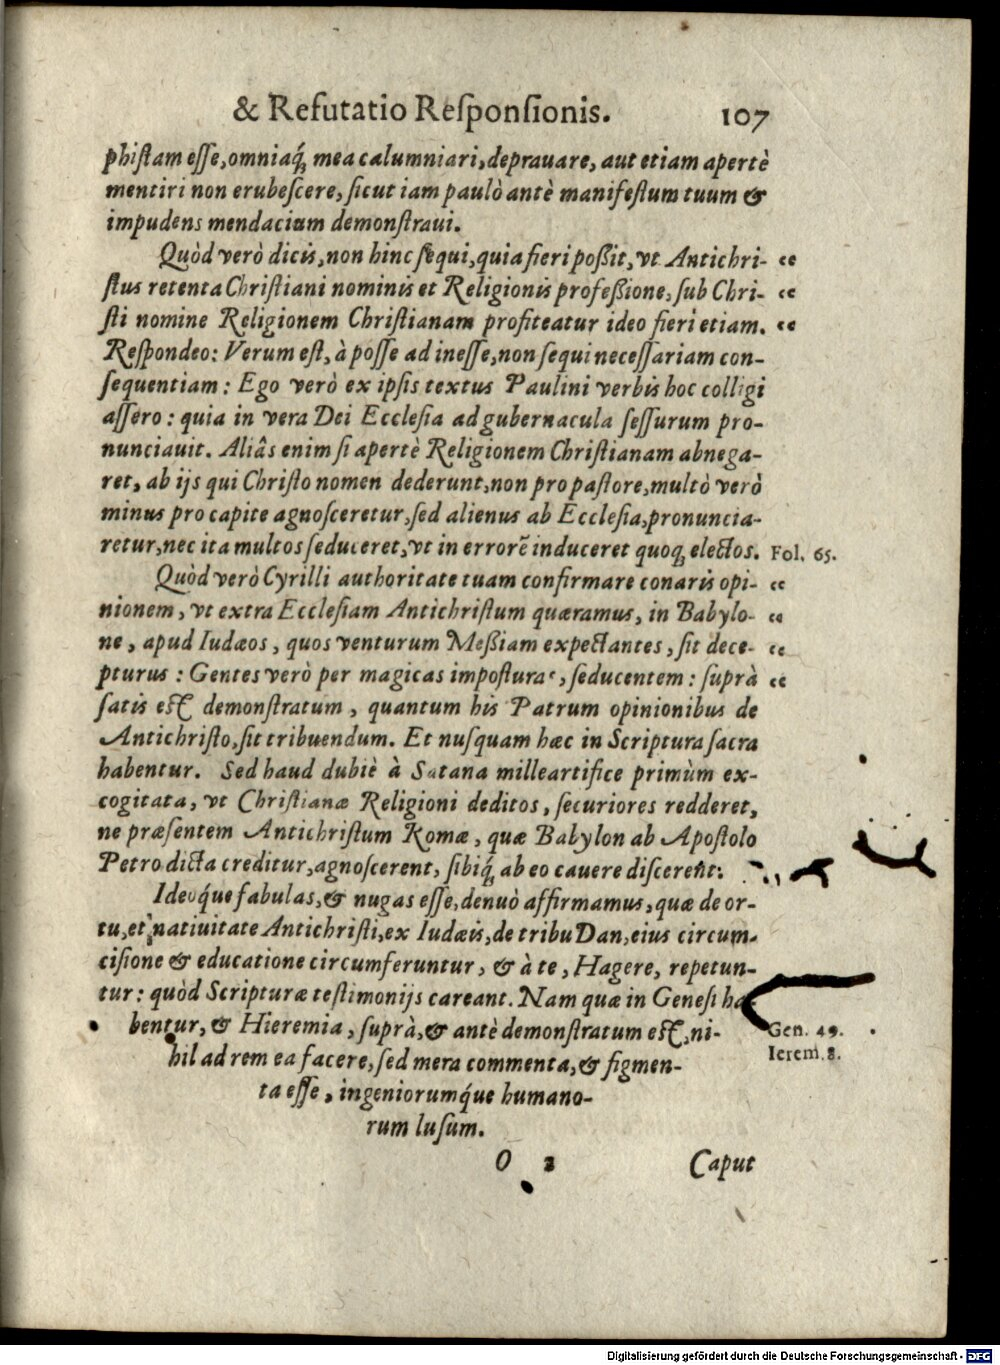 & Refutatio Reſponſionis. 107
phiſtam eſſe, omniaq́; mea calumniari, deprauare, aut etiam apertè
mentiri non erubeſcere, ſicut iam paulò antè manifeſtum tuum &
impudens mendacium demonſtraui.
Quòd verò dicis, non hinc ſequi, quia fieri poßit, vt Antichri- “
ſtus retenta Chriſtiani nominis et Religionis profeßione, ſub Chri- “
ſti nomine Religionem Chriſtianam profiteatur ideo fieri etiam. “
Reſpondeo: Verum eſt, à poſſe ad ineſſe, non ſequi neceſſariam con-
ſequentiam: Ego verò ex ipſis textus Paulini verbis hoc colligi
aſſero: quia in vera Dei Eccleſia ad gubernacula ſeſſurum pro-
nunciauit. Aliâs enim ſi apertè Religionem Chriſtianam abnega-
ret, ab ijs qui Chriſto nomen dederunt, non pro paſtore, multò verò
minus pro capite agnoſceretur, ſed alienus ab Eccleſia, pronuncia-
retur, nec ita multos ſeduceret, vt in errorẽ induceret quoq; electos. Fol. 65.
Quòd verò Cyrilli authoritate tuam confirmare conaris opi- “
nionem, vt extra Eccleſiam Antichriſtum quæramus, in Babylo- “
ne, apud Iudæos, quos venturum Meßiam expectantes, ſit dece- “
pturus: Gentes verò per magicas impoſturas, ſeducentem: ſuprà “
ſatis eſt demonſtratum, quantum his Patrum opinionibus de
Antichriſto, ſit tribuendum. Et nuſquam hæc in Scriptura ſacra
habentur. Sed haud dubiè à Satana milleartifice primùm ex-
cogitata, vt Chriſtianæ Religioni deditos, ſecuriores redderet,
ne præſentem Antichriſtum Romæ, quæ Babylon ab Apoſtolo
Petro dicta creditur, agnoſcerent, ſibiq́; ab eo cauere diſcerent.
Ideoq́ue fabulas, & nugas eſſe, denuò affirmamus, quæ de or-
tu, et natiuitate Antichriſti, ex Iudæis, de tribu Dan, eius circum-
ciſione & educatione circumferuntur, & à te, Hagere, repetun-
tur: quòd Scripturæ teſtimonijs careant. Nam quæ in Geneſi ha-
bentur, & Hieremia, ſuprà, & antè demonſtratum eſt, ni- Gen. 49.
hil ad rem ea facere, ſed mera commenta, & figmen- Ierem. 8.
ta eſſe, ingeniorumq́ue humano-
rum luſum.
O 2 Caput
Digitalisierung gefördert durch die Deutsche Forschungsgemeinschaft - DFG